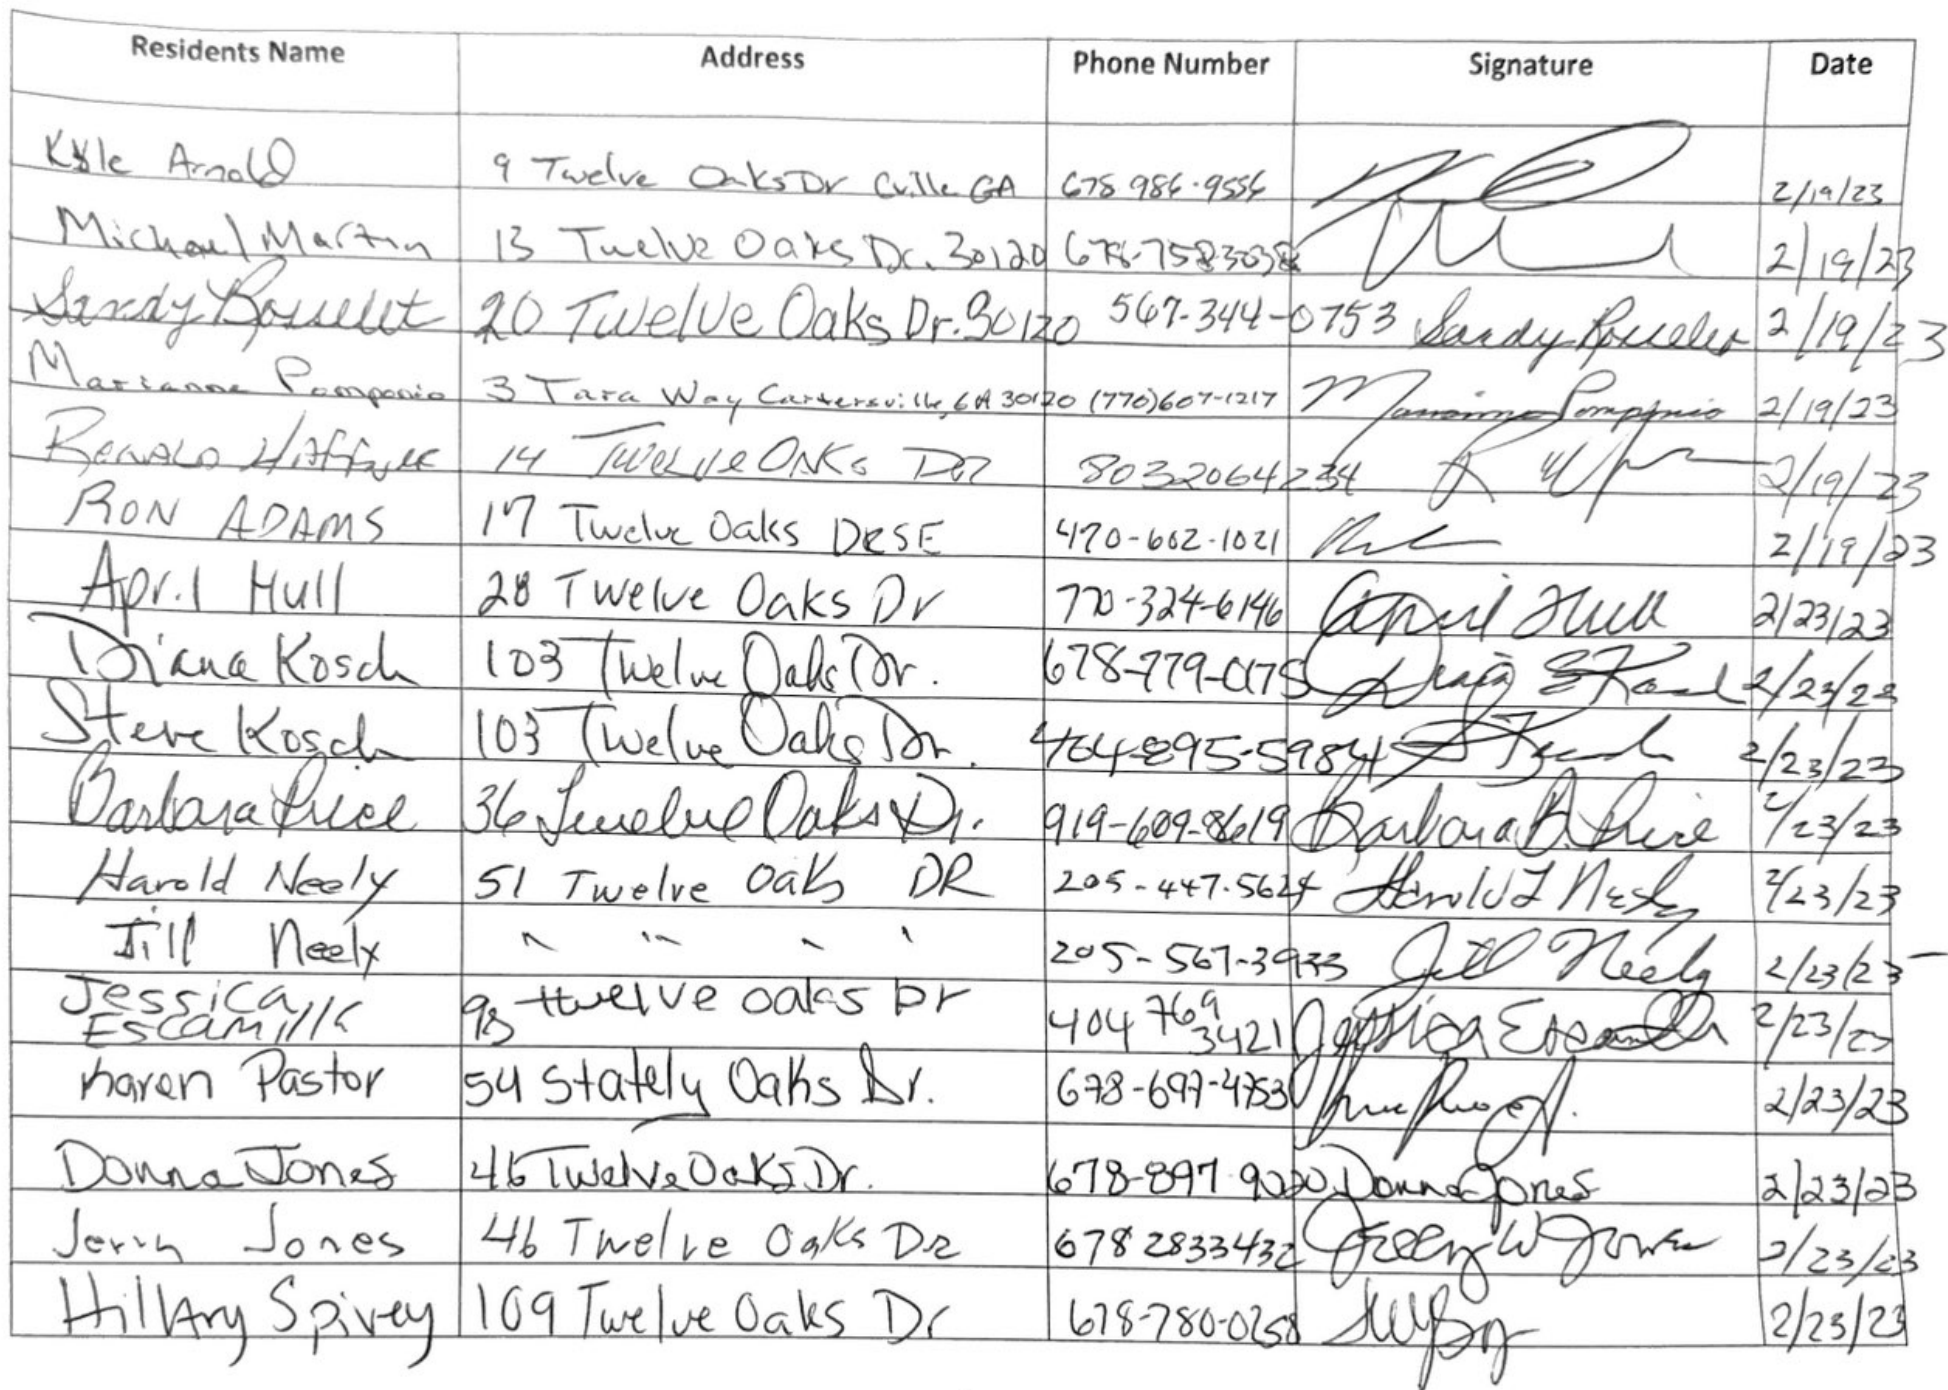 Residents Name Address Phone Number Signature Date
Kyle Arnold 9 Twelve Oaks Dr Cville GA 678 986-9556 2/19/23
Michael Martin 13 Twelve Oaks Dr. 30120 678-758-3038 2/19/23
Sandy 20 Twelve Oaks Dr. 30120 567-344-0753 Sandy 2/19/23
Marianne Pomponio 3 Tara Way Cartersville, GA 30120 (770)607-1217 Marianne Pomponio 2/19/23
14 Twelve Oaks Dr 8032064234 2/19/23
RON ADAMS 17 Twelve Oaks DRSE 470-602-1021 2/19/23
April Hull 28 Twelve Oaks Dr 770-324-6146 April Hull 2/23/23
Diana Kosch 103 Twelve Oaks Dr. 678-779-0175 Diana E Kosch 2/23/23
Steve Kosch 103 Twelve Oaks Dr. 404-895-5984 2/23/23
Barbara Price 36 Twelve Oaks Dr. 919-609-8619 Barbara B. Price 2/23/23
Harold Neely 51 Twelve Oaks DR 205-447-5624 Harold L Neely 2/23/23
Jill Neely " " " " 205-567-3933 Jill Neely 2/23/23
Jessica Escamilla 93 twelve oaks Dr 404 769 3421 Jessica Escamilla 2/23/23
Karen Pastor 54 Stately Oaks Dr. 678-697-4753 2/23/23
Donna Jones 46 Twelve Oaks Dr. 678-897-9020 Donna Jones 2/23/23
Jerry Jones 46 Twelve Oaks Dr 678 2833432 Jerry W Jones 2/23/23
Hillary Spivey 109 Twelve Oaks Dr 678-780-0258 2/23/23